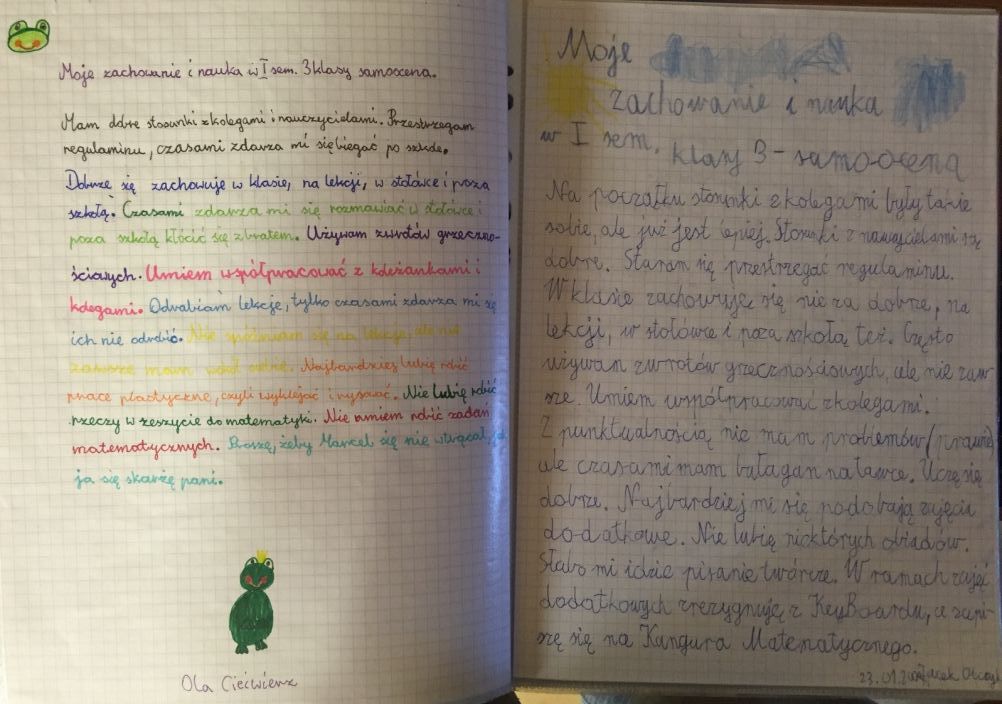 Moje zachowanie i nauka w I sem. 3 klasy samoocena.
Mam dobre stosunki z kolegami i nauczycielami. Przestrzegam
regulaminu, czasami zdarza mi się biegać po szkole.
Dobrze się zachowuję w klasie, na lekcji, w stołówce i poza
szkołą. Czasami zdarza mi się rozmawiać w stołówce i
poza szkołą kłócić się z bratem. Używam zwrotów grzeczno-
ściowych. Umiem współpracować z koleżankami i
kolegami. Odrabiam lekcje, tylko czasami zdarza mi się
ich nie odrobić. Nie spóźniam się na lekcje, ale nie
zawsze mam wokół siebie. Najbardziej lubię robić
prace plastyczne, czyli wyklejać i rysować. Nie lubię robić
rzeczy w zeszycie do matematyki. Nie umiem robić zadań
matematycznych. Proszę, żeby Marcel się nie wtrącał, jak
ja się skarżę pani.
Ola Ciećwierz
Moje
zachowanie i nauka
w I sem. klasy 3 - samoocena
Na początku stosunki z kolegami były takie
sobie, ale już jest lepiej. Stosunki z nauczycielami są
dobre. Staram się przestrzegać regulaminu.
W klasie zachowuje się nie za dobrze, na
lekcji, w stołówce i poza szkołą też. Często
używam zwrotów grzecznościowych, ale nie zaw-
sze. Umiem współpracować z kolegami.
Z punktualnością nie mam problemów (prawie)
ale czasami mam bałagan na ławce. Uczę się
dobrze. Najbardziej mi się podobają zajęcia
dodatkowe. Nie lubię niektórych obiadów.
Słabo mi idzie pisanie twórcze. W ramach zajęć
dodatkowych zrezygnuję z KeyBoardu, a zapi-
szę się na Kangura Matematycznego.
23.01.2 Jacek